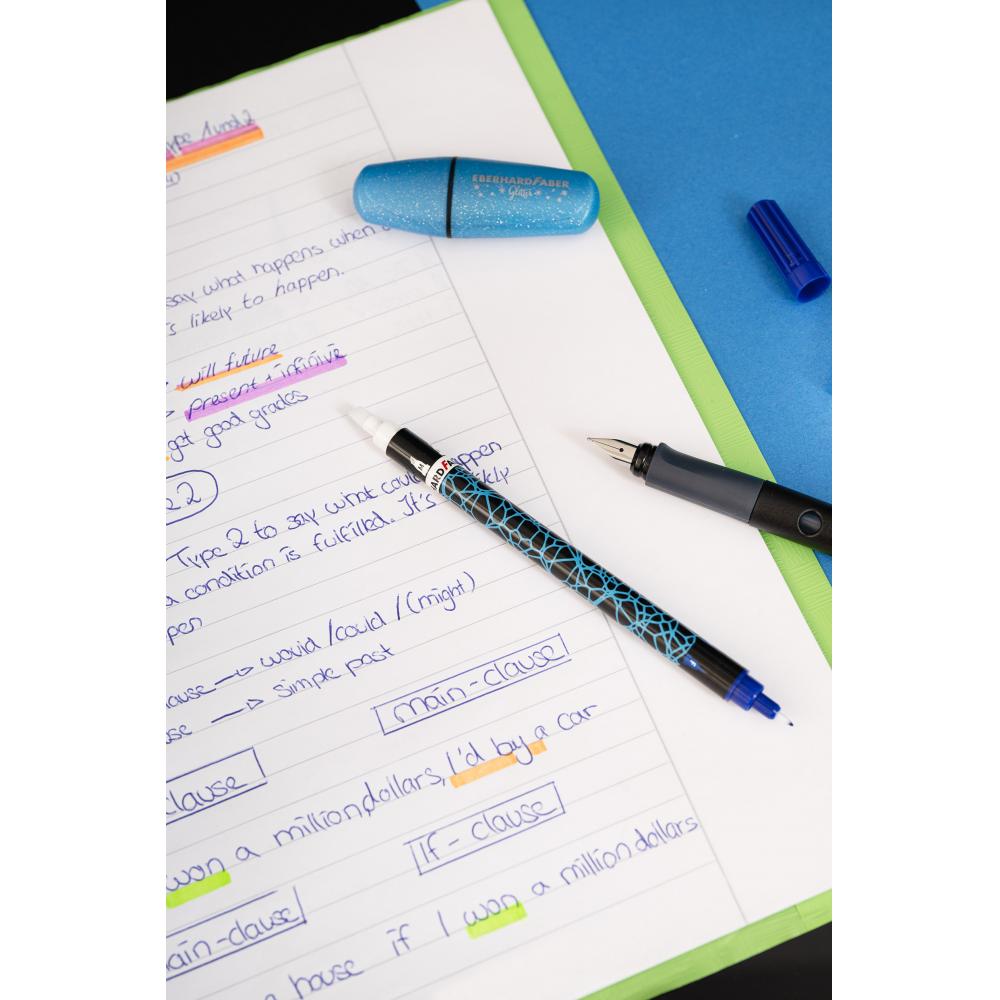 Type 1 und 2
EBERHARDFABER
Glitter
say what happens when
is likely to happen.
will future
present + infinive
get good grades
2.2
M
ARDFA
Type 2 to say what could happen
a condition is fulfilled. It's
pen
clause → would / could / (might)
se → simple past
main-clause
clause
I won a million dollars, I'd by a car
If - clause
main-clause
a house if I won a million dollars